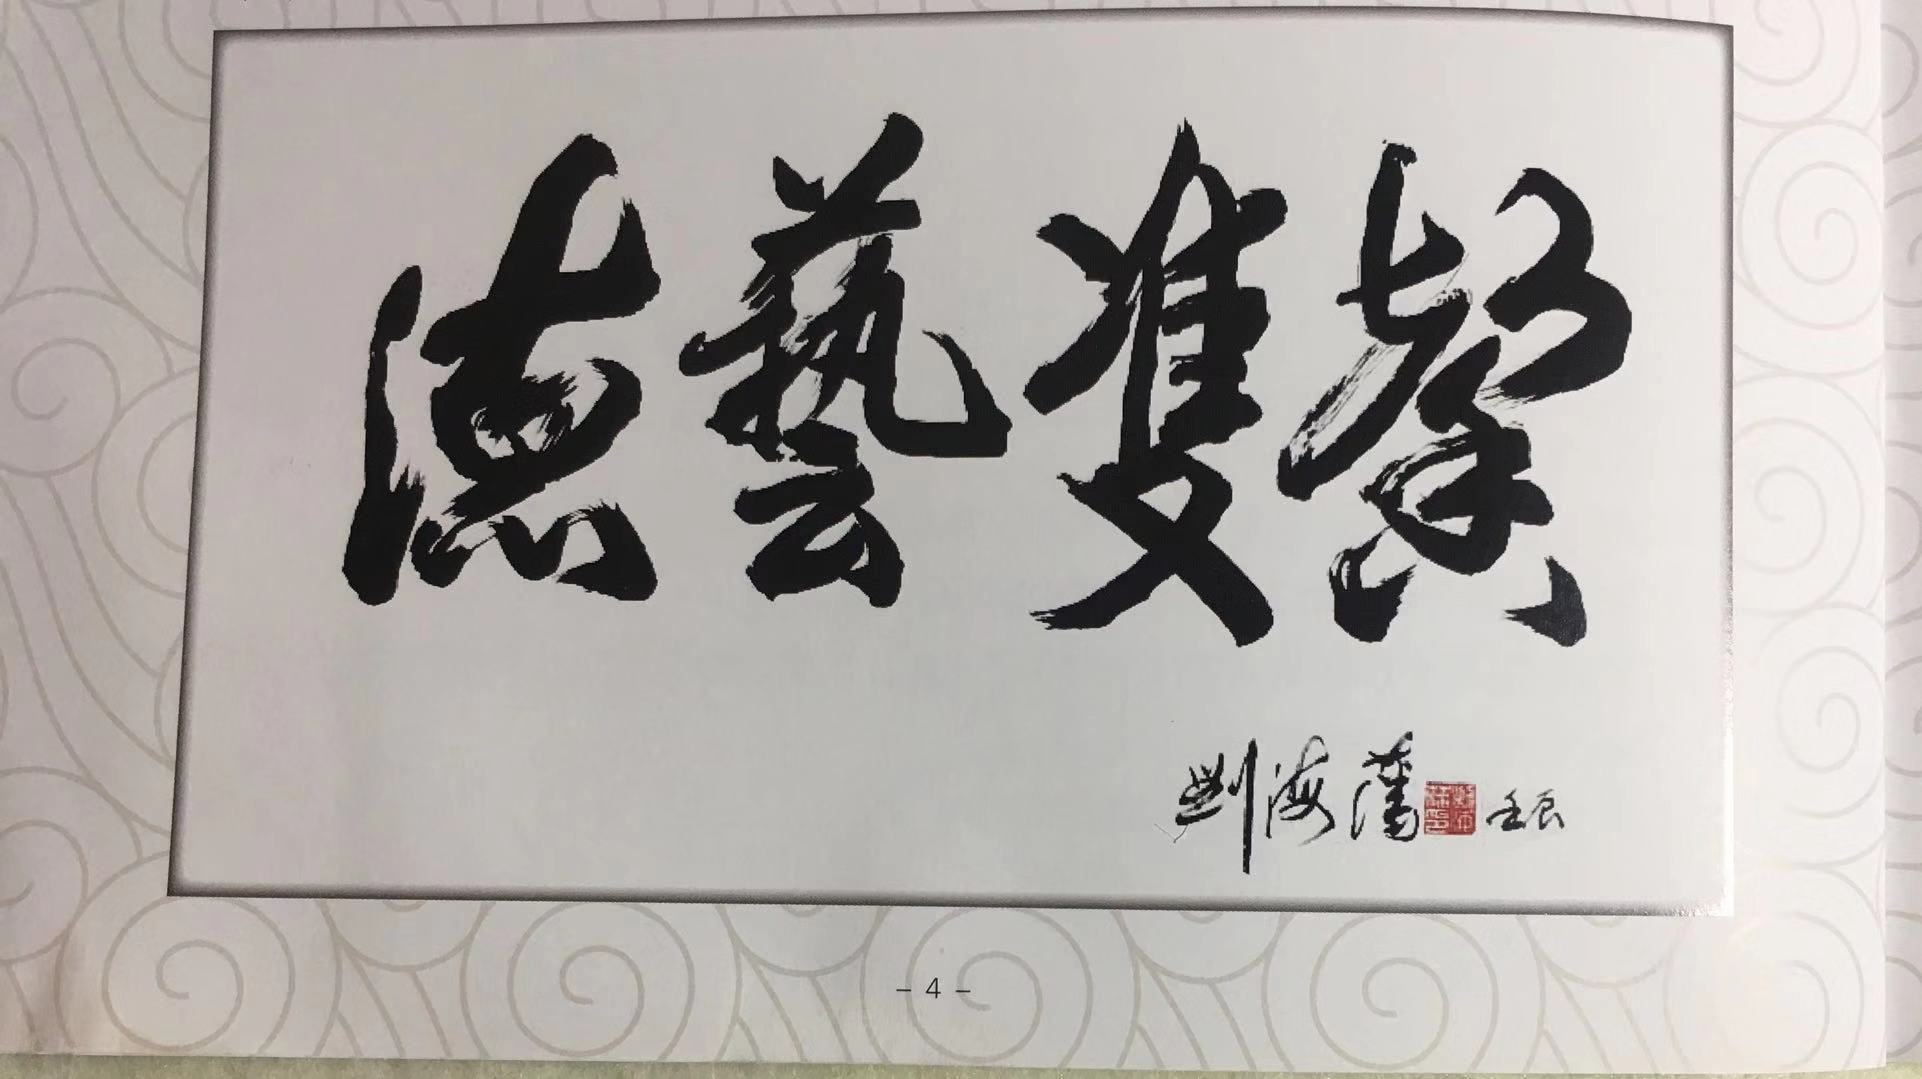 德藝雙馨
劉海藩 壬辰
- 4 -